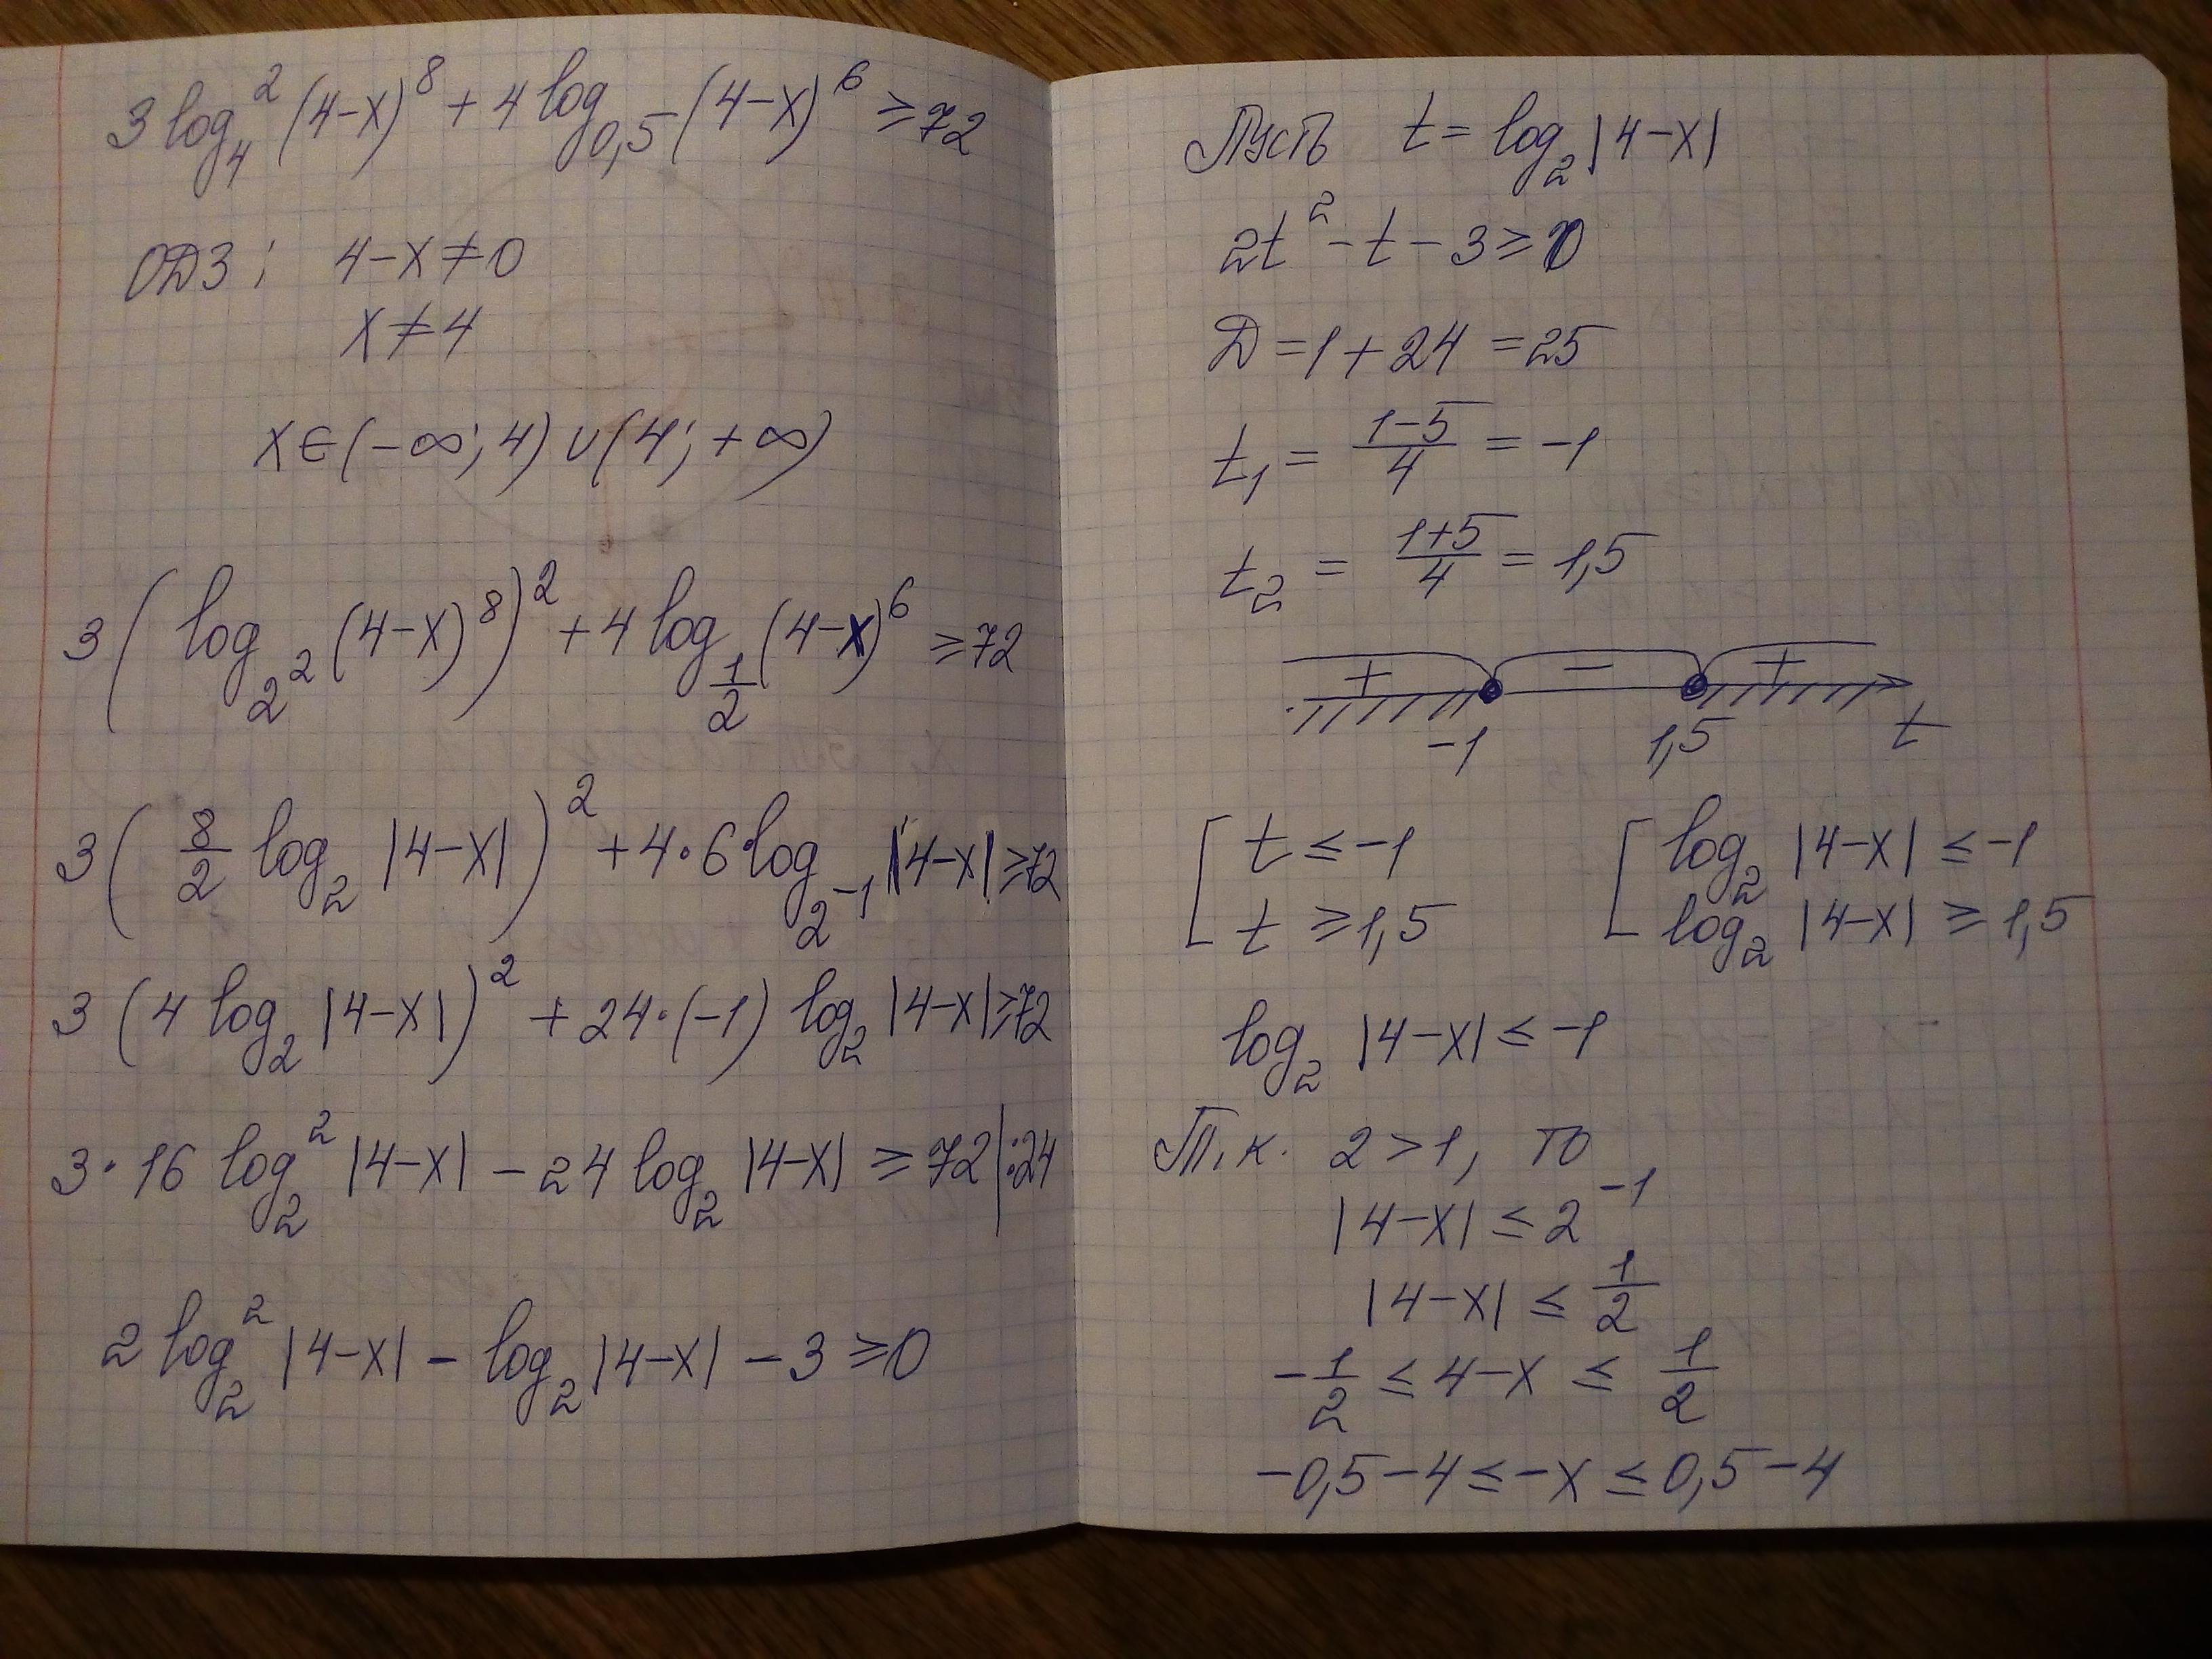 3 log₄² (4-x)⁸ + 4 log₀,₅ (4-x)⁶ ≥ 72
ОДЗ: 4-x ≠ 0
x ≠ 4
x ∈ (-∞; 4) ∪ (4; +∞)
3 ( log_{2²} (4-x)⁸ )² + 4 log_{1/2} (4-x)⁶ ≥ 72
3 ( 8/2 log₂ |4-x| )² + 4·6·log_{2⁻¹} |4-x| ≥ 72
3 ( 4 log₂ |4-x| )² + 24·(-1) log₂ |4-x| ≥ 72
3·16 log₂² |4-x| - 24 log₂ |4-x| ≥ 72 | :24
2 log₂² |4-x| - log₂ |4-x| - 3 ≥ 0
Пусть t = log₂ |4-x|
2t² - t - 3 ≥ 0
Д = 1 + 24 = 25
t₁ = (1-5)/4 = -1
t₂ = (1+5)/4 = 1,5
+ - +
-1 1,5 t
[ t ≤ -1 [ log₂ |4-x| ≤ -1
t ≥ 1,5 log₂ |4-x| ≥ 1,5
log₂ |4-x| ≤ -1
Т.к. 2 > 1, то
|4-x| ≤ 2⁻¹
|4-x| ≤ 1/2
-1/2 ≤ 4-x ≤ 1/2
-0,5-4 ≤ -x ≤ 0,5-4